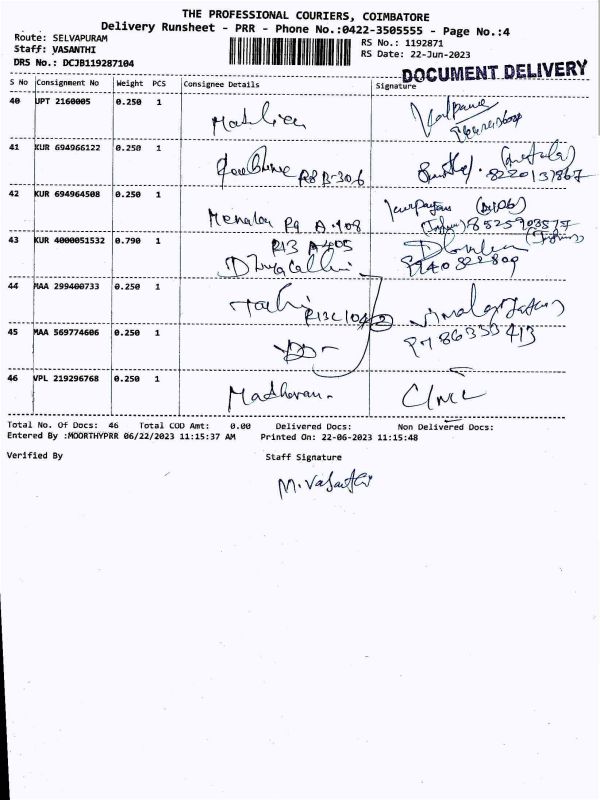 THE PROFESSIONAL COURIERS, COIMBATORE
Delivery Runsheet - PRR - Phone No.:0422-3505555 - Page No.:4
Route: SELVAPURAM
RS No.: 1192871
Staff: VASANTHI
RS Date: 22-Jun-2023
DRS No.: DCJB119287104
DOCUMENT DELIVERY
S No Consignment No Weight PCS Consignee Details Signature
40 UPT 2160005 0.250 1
41 KUR 694966122 0.250 1
R8 B-306 8220137867
42 KUR 694964508 0.250 1
R9 A-408
43 KUR 4000051532 0.790 1
R13 A405
44 MAA 299400733 0.250 1
R13C104
45 MAA 569774606 0.250 1
46 VPL 219296768 0.250 1
Madhavan
Total No. Of Docs: 46 Total COD Amt: 0.00 Delivered Docs: Non Delivered Docs:
Entered By :MOORTHYPRR 06/22/2023 11:15:37 AM Printed On: 22-06-2023 11:15:48
Verified By Staff Signature
M. Vasanthi